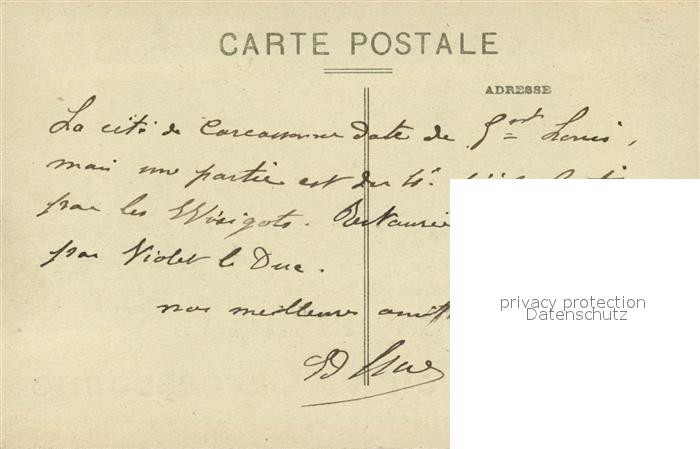 CARTE POSTALE
ADRESSE
La cité de Carcassonne date de St Louis,
mais une partie est du 4e
par les Wisigots. Restaurée
par Violet le Duc.
nos meilleures
privacy protection
Datenschutz